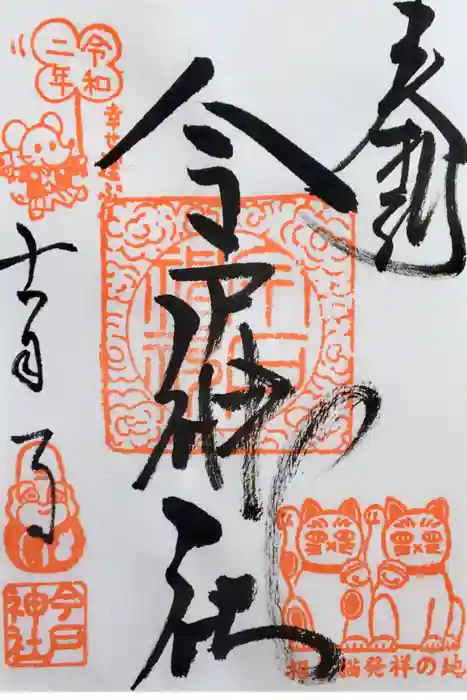 奉拝
今戸神社
令和
二年
幸せ運ぶ
招き猫発祥の地
十一月
今戸
神社